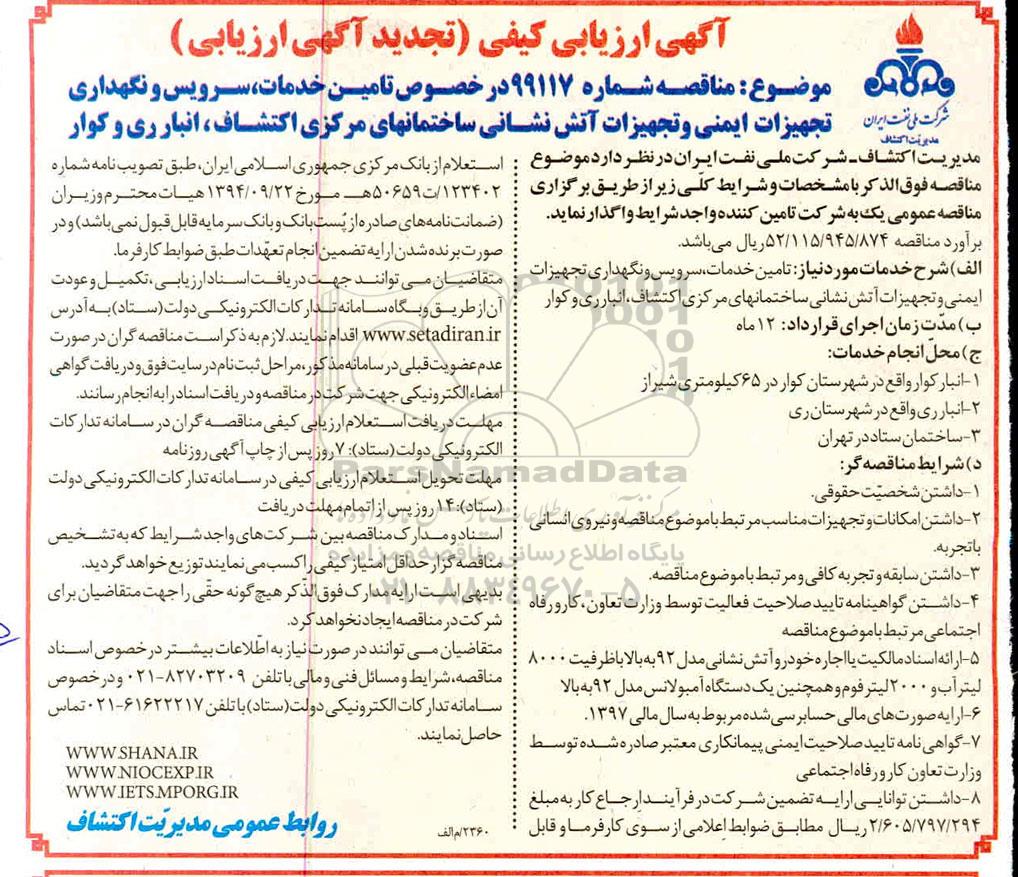 آگهی ارزیابی کیفی (تجدید آگهی ارزیابی)
موضوع: مناقصه شماره ۹۹۱۱۷ در خصوص تامین خدمات، سرویس و نگهداری
تجهیزات ایمنی وتجهیزات آتش نشانی ساختمانهای مرکزی اکتشاف، انبار ری و کوار
شرکت ملی نفت ایران
مدیریت اکتشاف
مدیریت اکتشاف ـ شرکت ملی نفت ایران در نظر دارد موضوع
مناقصه فوق الذکر با مشخصات و شرایط کلّی زیر از طریق برگزاری
مناقصه عمومی یک به شرکت تامین کننده واجد شرایط واگذار نماید.
برآورد مناقصه ۵۲/۱۱۵/۹۴۵/۸۷۴ ریال می‌باشد.
الف) شرح خدمات مورد نیاز: تامین خدمات، سرویس و نگهداری تجهیزات
ایمنی و تجهیزات آتش نشانی ساختمانهای مرکزی اکتشاف، انبار ری و کوار
ب) مدّت زمان اجرای قرارداد: ۱۲ ماه
ج) محلّ انجام خدمات:
۱-انبار کوار واقع در شهرستان کوار در ۶۵ کیلومتری شیراز
۲-انبار ری واقع در شهرستان ری
۳-ساختمان ستاد در تهران
د) شرایط مناقصه‌گر:
۱-داشتن شخصیّت حقوقی.
۲-داشتن امکانات و تجهیزات مناسب مرتبط با موضوع مناقصه و نیروی انسانی
باتجربه.
۳-داشتن سابقه و تجربه کافی و مرتبط با موضوع مناقصه.
۴-داشتن گواهینامه تایید صلاحیت فعالیت توسط وزارت تعاون، کار و رفاه
اجتماعی مرتبط با موضوع مناقصه
۵-ارائه اسناد مالکیت یا اجاره خودرو آتش نشانی مدل ۹۲ به بالا با ظرفیت ۸۰۰۰
لیتر آب و ۲۰۰۰ لیتر فوم و همچنین یک دستگاه آمبولانس مدل ۹۲ به بالا
۶-ارایه صورت‌های مالی حسابرسی شده مربوط به سال مالی ۱۳۹۷.
۷-گواهی نامه تایید صلاحیت ایمنی پیمانکاری معتبر صادره شده توسط
وزارت تعاون کار و رفاه اجتماعی
۸-داشتن توانایی ارایه تضمین شرکت در فرآیند ارجاع کار به مبلغ
۲/۶۰۵/۷۹۷/۲۹۴ ریال مطابق ضوابط اعلامی از سوی کارفرما و قابل
استعلام از بانک مرکزی جمهوری اسلامی ایران، طبق تصویب نامه شماره
۱۲۳۴۰۲/ت۵۰۶۵۹هـ مورخ ۱۳۹۴/۰۹/۲۲ هیات محترم وزیران
(ضمانت‌نامه‌های صادره از پُست بانک و بانک سرمایه قابل قبول نمی باشد) و در
صورت برنده شدن ارایه تضمین انجام تعهّدات طبق ضوابط کارفرما.
متقاضیان می توانند جهت دریافت اسناد ارزیابی، تکمیل و عودت
آن از طریق وبگاه سامانه تدارکات الکترونیکی دولت (ستاد) به آدرس
www.setadiran.ir اقدام نمایند. لازم به ذکر است مناقصه گران در صورت
عدم عضویت قبلی در سامانه مذکور، مراحل ثبت نام در سایت فوق و دریافت گواهی
امضاء الکترونیکی جهت شرکت در مناقصه و دریافت اسناد را به انجام رسانند.
مهلت دریافت استعلام ارزیابی کیفی مناقصه گران در سامانه تدارکات
الکترونیکی دولت (ستاد): ۷ روز پس از چاپ آگهی روزنامه
مهلت تحویل استعلام ارزیابی کیفی در سامانه تدارکات الکترونیکی دولت
(ستاد): ۱۴ روز پس از اتمام مهلت دریافت
اسناد و مدارک مناقصه بین شرکت‌های واجد شرایط که به تشخیص
مناقصه گزار حداقل امتیاز کیفی را کسب می نمایند توزیع خواهد گردید.
بدیهی است ارایه مدارک فوق الذّکر هیچ گونه حقّی را جهت متقاضیان برای
شرکت در مناقصه ایجاد نخواهد کرد.
متقاضیان می توانند در صورت نیاز به اطّلاعات بیشتر در خصوص اسناد
مناقصه، شرایط و مسائل فنی و مالی با تلفن ۸۲۷۰۳۲۰۹-۰۲۱ و در خصوص
سامانه تدارکات الکترونیکی دولت (ستاد) با تلفن ۶۱۶۲۲۲۱۷-۰۲۱ تماس
حاصل نمایند.
WWW.SHANA.IR
WWW.NIOCEXP.IR
WWW.IETS.MPORG.IR
روابط عمومی مدیریّت اکتشاف
۲۳۶۰/م الف
ParsNamadData
پایگاه اطلاع رسانی مناقصه و مزایده
۰۲۱-۸۸۳۴۹۶۷۰-۵